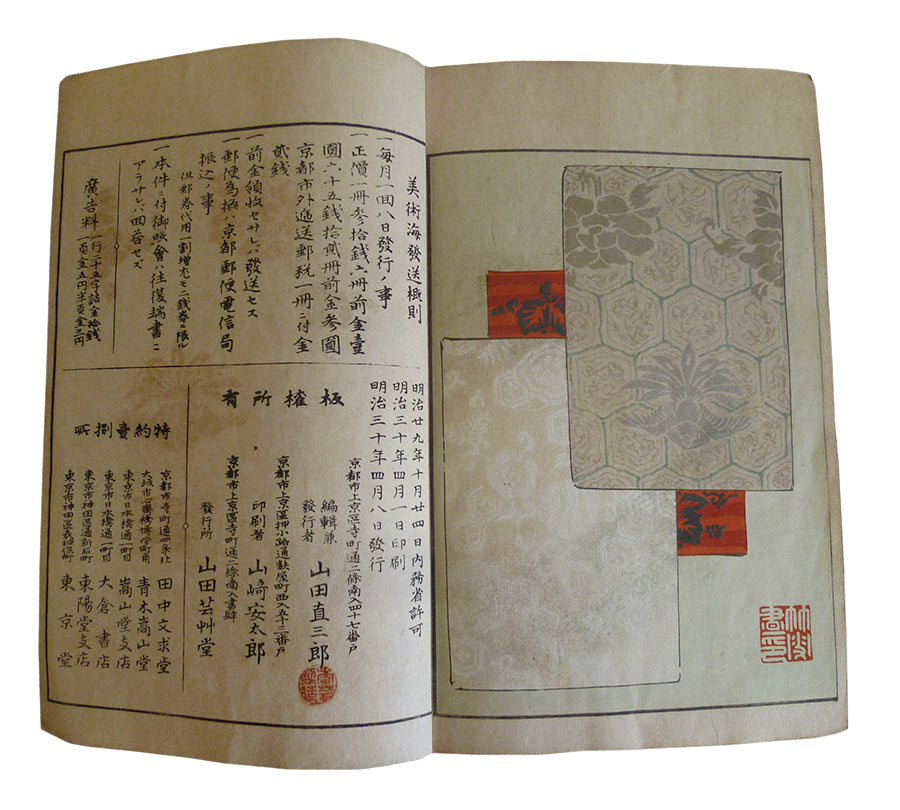 美術海發送概則
一毎月一回八日發行ノ事
一正價一冊參拾錢六冊前金壹
圓六十五錢拾貳冊前金參圓
京都市外遞送郵税一冊ニ付金
貳錢
一前金領收セサレハ發送セス
一郵便為換ハ京都郵便電信局
振込ノ事
但郵券代用一割増尤モ二錢券ニ限ル
一本件ニ付御照會ハ往復端書ニ
アラサレハ回荅セズ
廣告料
一行二十五字詰金拾錢
一頁金五円半頁金三円
明治廿九年十月廿四日内務省許可
明治三十年四月一日印刷
明治三十年四月八日發行
板權所有
京都市上京區寺町通二條南入四十七番戸
編輯兼
發行者
山田直三郎
京都市上京區押小路通麩屋町西入五十二番戸
印刷者
山﨑安太郎
京都市上京區寺町通二條南入書肆
發行所
山田芸艸堂
特約賣捌所
京都市寺町通四条北
田中文求堂
大坂市心齋橋博労町角
青木嵩山堂
東京市日本橋通一町目
嵩山堂支店
東京市日本橋通一町目
大倉書店
東京市神田區通新石町
東陽堂支店
東京市神田區表神保町
東京堂